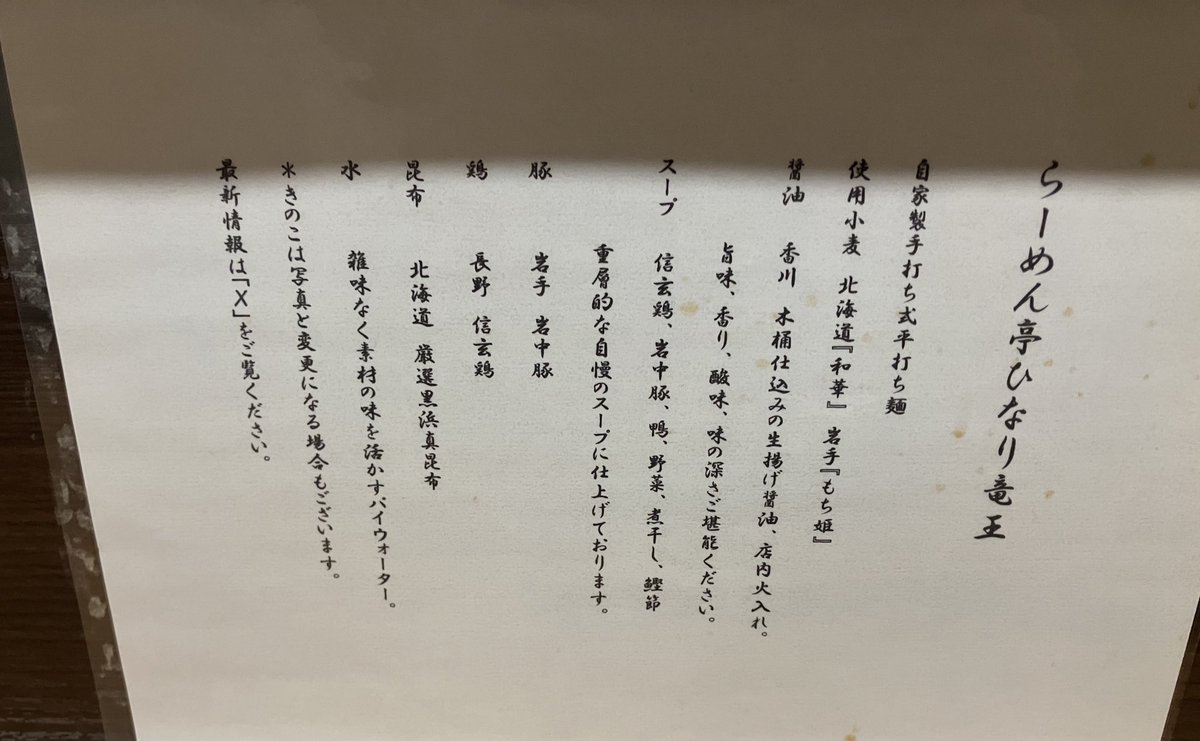 らーめん亭ひなり竜王
自家製手打ち式平打ち麺
使用小麦　北海道『和華』　岩手『もち姫』
醤油　香川　木桶仕込みの生揚げ醤油、店内火入れ。
旨味、香り、酸味、味の深さご堪能ください。
スープ　信玄鶏、岩中豚、鴨、野菜、煮干し、鰹節
重層的な自慢のスープに仕上げております。
豚　岩手　岩中豚
鶏　長野　信玄鶏
昆布　北海道　厳選黒浜真昆布
水　雑味なく素材の味を活かすパイウォーター。
＊きのこは写真と変更になる場合もございます。
最新情報は「X」をご覧ください。